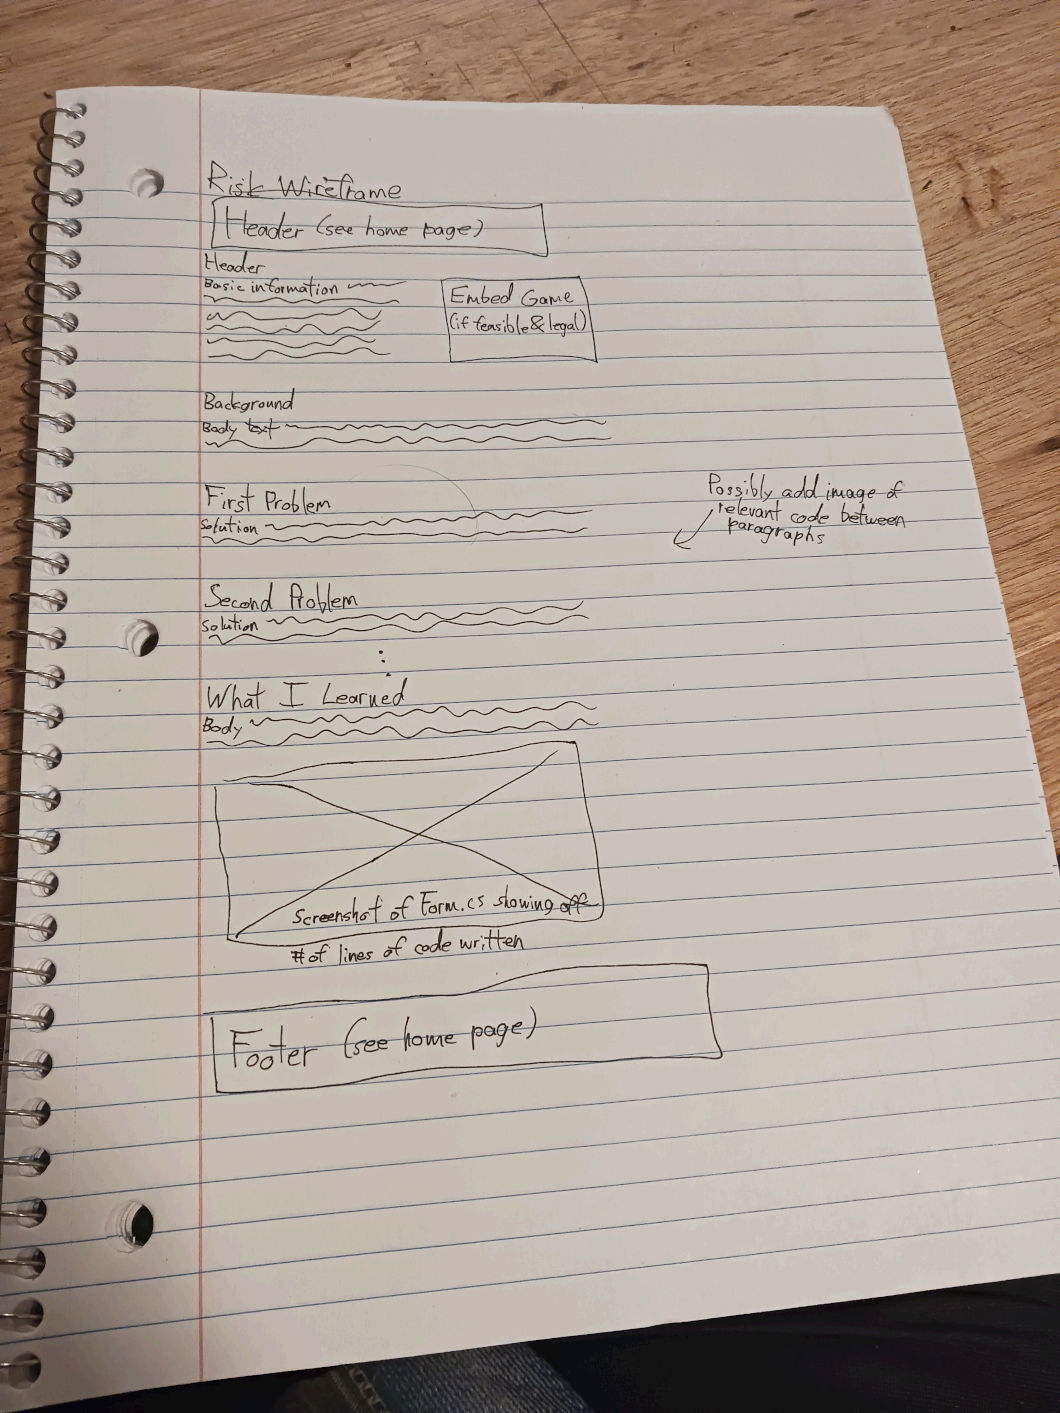 Risk Wireframe
Header (see home page)
Header
Basic information
Embed Game
(if feasible & legal)
Background
Body text
First Problem
Solution
Possibly add image of
relevant code between
paragraphs
Second Problem
Solution
What I Learned
Body
Screenshot of Form.cs showing off
# of lines of code written
Footer (see home page)